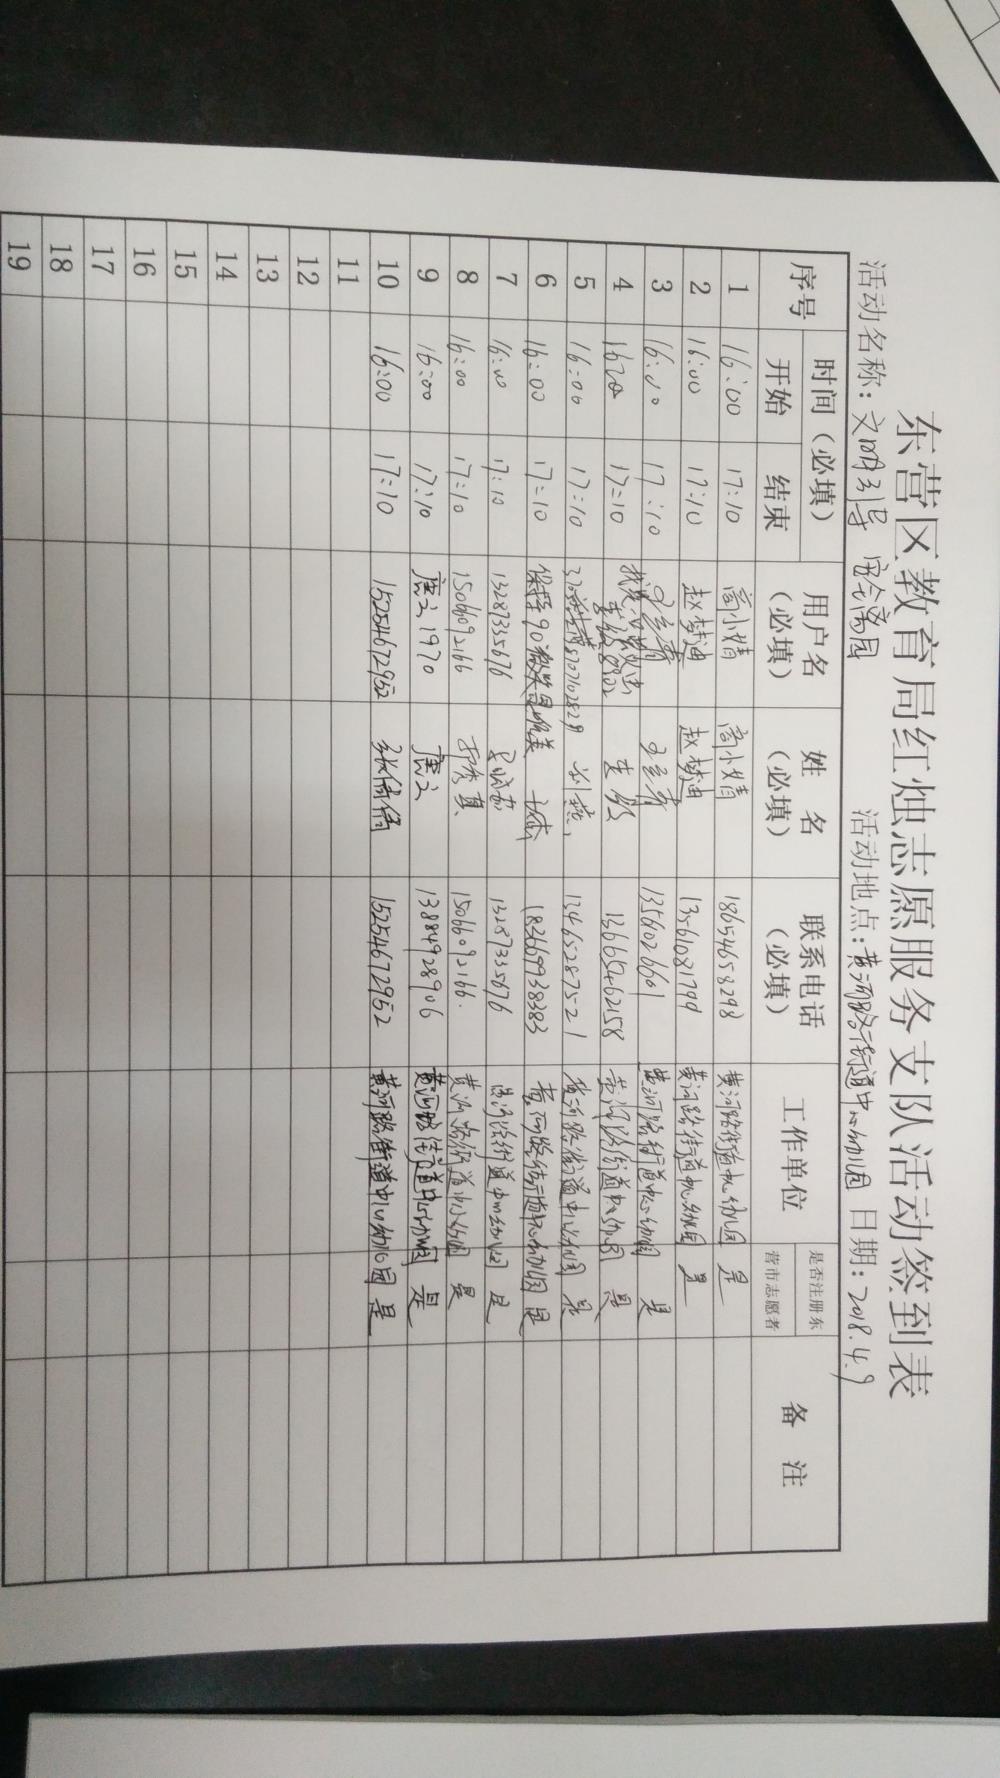 东营区教育局红烛志愿服务支队活动签到表
活动名称：文明引导 安全离园 活动地点：黄河路街道中心幼儿园 日期：2018.4.9
序号 时间（必填） 用户名（必填） 姓名（必填） 联系电话（必填） 工作单位 是否注册东营市志愿者 备注
开始 结束
1 16:00 17:10 小婧 小婧 18654658298 黄河路街道中心幼儿园 是
2 16:00 17:10 赵梦迪 赵梦迪 13561081799 黄河路街道中心幼儿园 是
3 16:00 17:10 1354026601 黄河路街道中心幼儿园 是
4 1600 17:10 13665462158 黄河路街道中心幼儿园 是
5 16:00 17:10 刘燕 13465287521 黄河路街道中心幼儿园 是
6 16:00 17:10 保持 90 微笑是唯美 183669938383 黄河路街道中心幼儿园 是
7 16:00 17:10 13287335676 13287335676 黄河路街道中心幼儿园 是
8 16:00 17:10 15066092166 秀真 15066092166. 黄河路街道中心幼儿园 是
9 16:00 17:10 唐云1970 唐云 13884928906 黄河路街道中心幼儿园 是
10 16:00 17:10 15254672952 张倩倩 15254672952 黄河路街道中心幼儿园 是
11
12
13
14
15
16
17
18
19